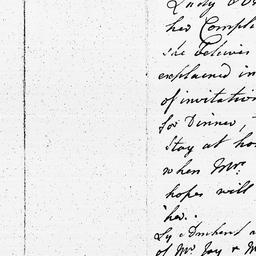 Lady
her Compl
she believes
explained in
of invitation
for Dinner,
Stay at ho
when Mr.
hopes will
her.
Ly Amherst a
of Mr. Jay & M